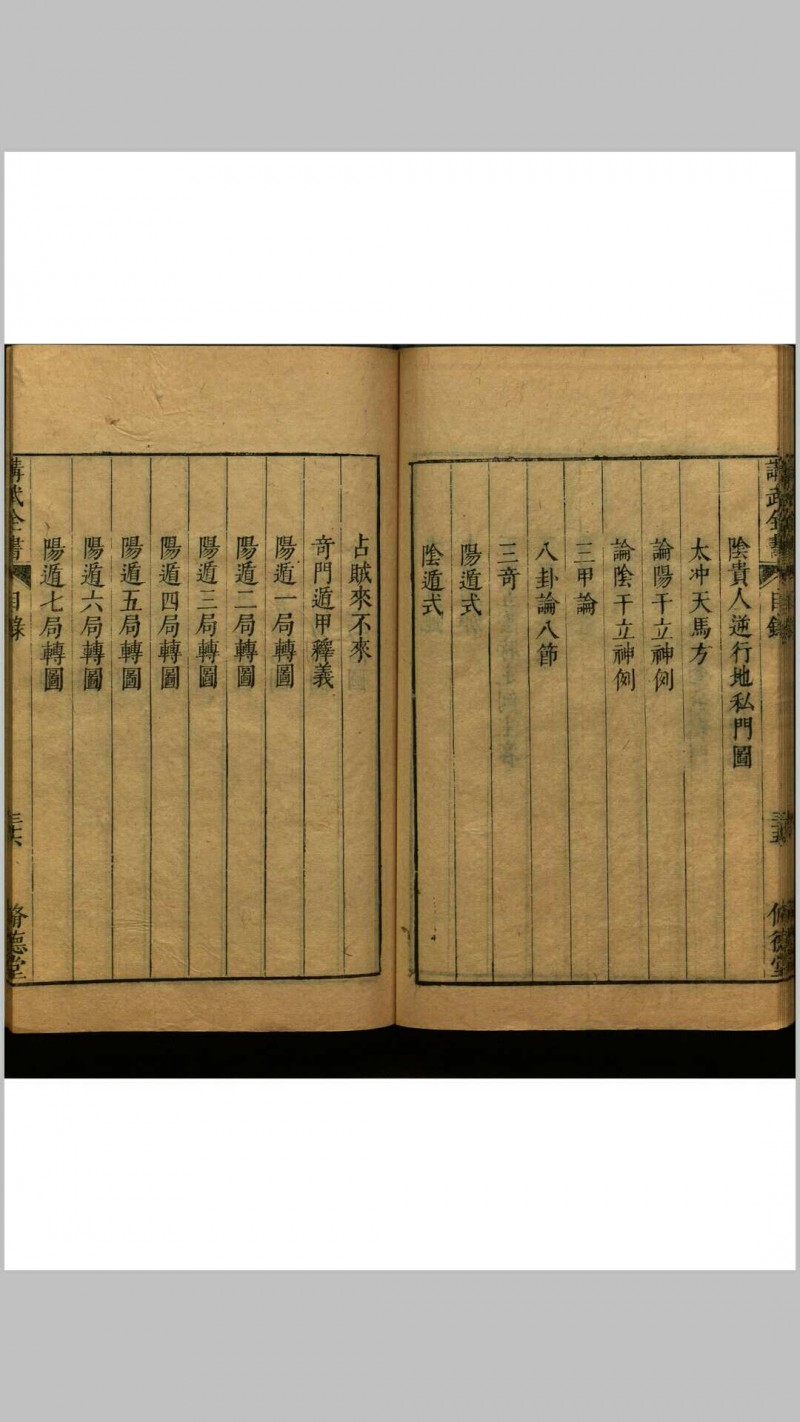 講武全書
目錄
三十五
脩德堂
陰貴人逆行地私門圖
太冲天馬方
論陽干立神例
論陰干立神例
三甲論
八卦論八節
三奇
陽遁式
陰遁式
占賊來不來
奇門遁甲釋義
陽遁一局轉圖
陽遁二局轉圖
陽遁三局轉圖
陽遁四局轉圖
陽遁五局轉圖
陽遁六局轉圖
陽遁七局轉圖
講武全書
目錄
脩德堂